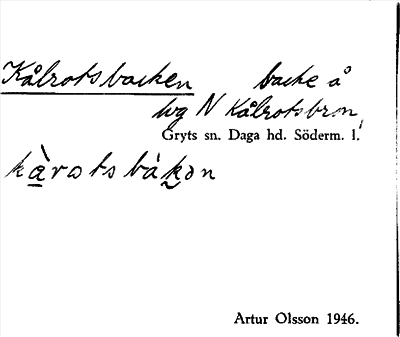 Kålrotsbacken   backe å
lvg N Kålrotsbron,
Gryts sn. Daga hd. Söderm. l.
kàrotsbákən
Artur Olsson 1946.